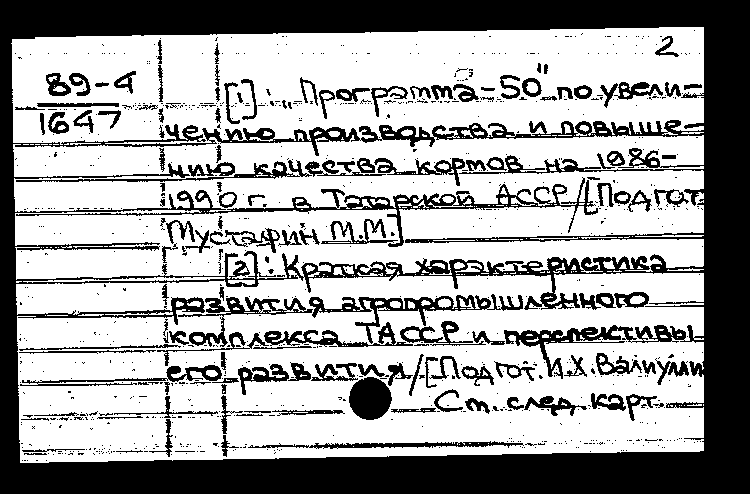 2
89-4
1647
[1]: „Программа-50" по увели-
чению производства и повыше-
нию качества кормов на 1986-
1990 г. в Татарской АССР/[Подгот.
Мустафин М.М.]
[2]: Краткая характеристика
развития агропромышленного
комплекса ТАССР и перспективы
его развития/[Подгот. И.Х. Валиуллин
См. след. карт.